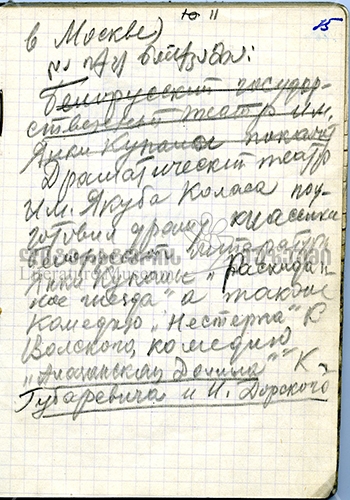 Ю 11
15
в Москве)
Белорусский государ-
ственный театр им.
Янки Купалы покажет
Драматический театр
им. Якуба Коласа под-
готовил драму классика
белорусской литературы
Янки Купалы „Раскидан-
ное гнездо" а также
комедию „Нестерка" В
Вольского, комедию
„Алазанская Долина" К.
Губаревича и И. Дорского
Literature Museum